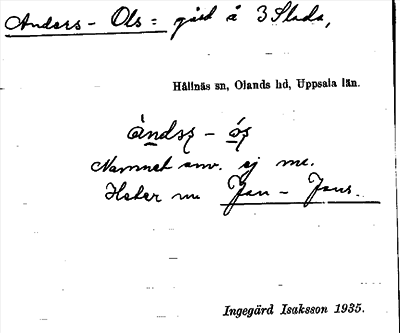 Anders-Ols = gård å 3 Slada,
Hållnäs sn, Olands hd, Uppsala län.
ànds̨ - ós̨
Namnet anv. ej me.
Heter nu Jan - Jans.
Ingegärd Isaksson 1935.